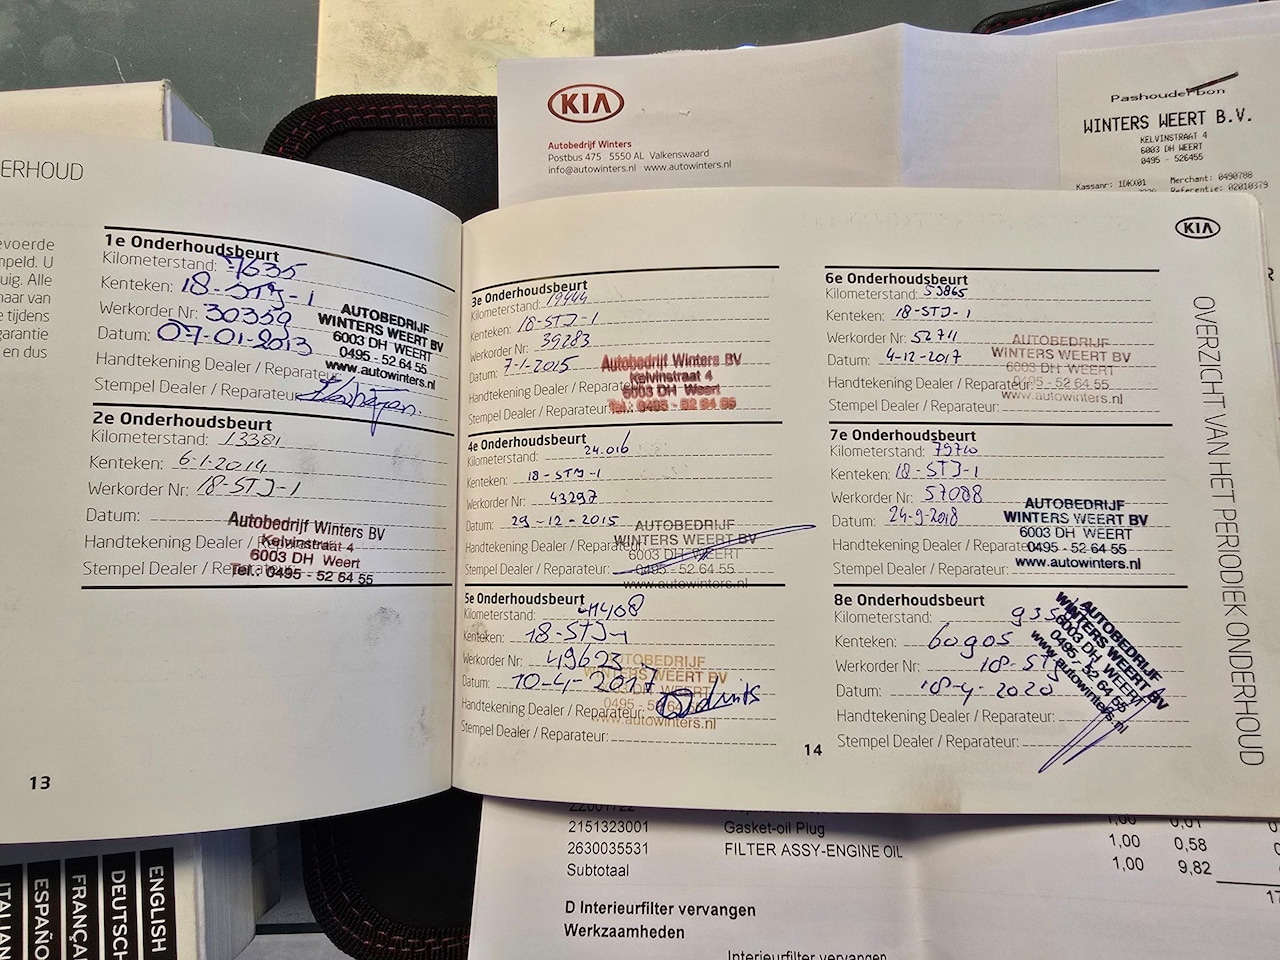 KIA
Autobedrijf Winters
Postbus 475 5550 AL Valkenswaard
info@autowinters.nl www.autowinters.nl
Pashouderbon
WINTERS WEERT B.V.
KELVINSTRAAT 4
6003 DH WEERT
0495 - 526455
Kassanr: 1DKX01 Merchant: 0490788
Referentie: 02010379
ERHOUD
evoerde
mpeld. U
uig. Alle
naar van
e tijdens
garantie
en dus
1e Onderhoudsbeurt
Kilometerstand: 7635
Kenteken: 18-STJ-1
Werkorder Nr: 30359
Datum: 07-01-2013
Handtekening Dealer / Reparateur
Stempel Dealer / Reparateur:
AUTOBEDRIJF
WINTERS WEERT BV
6003 DH WEERT
0495 - 52 64 55
www.autowinters.nl
2e Onderhoudsbeurt
Kilometerstand: 13381
Kenteken: 6-1-2014
Werkorder Nr: 18-STJ-1
Datum:
Handtekening Dealer / Reparateur:
Stempel Dealer / Reparateur:
Autobedrijf Winters BV
Kelvinstraat 4
6003 DH Weert
Tel.: 0495 - 52 64 55
13
3e Onderhoudsbeurt
Kilometerstand: 19444
Kenteken: 18-STJ-1
Werkorder Nr: 39283
Datum: 7-1-2015
Handtekening Dealer / Reparateur
Stempel Dealer / Reparateur:
Autobedrijf Winters BV
Kelvinstraat 4
6003 DH Weert
Tel.: 0495 - 52 64 55
4e Onderhoudsbeurt
Kilometerstand: 24.016
Kenteken: 18-STJ-1
Werkorder Nr: 43297
Datum: 29-12-2015
Handtekening Dealer / Reparateur
Stempel Dealer / Reparateur:
AUTOBEDRIJF
WINTERS WEERT BV
6003 DH WEERT
0495 - 52.64.55
www.autowinters.nl
5e Onderhoudsbeurt
Kilometerstand: 41408
Kenteken: 18-STJ-1
Werkorder Nr: 49623
Datum: 10-4-2017
Handtekening Dealer / Reparateur:
Stempel Dealer / Reparateur:
AUTOBEDRIJF
WINTERS WEERT BV
6003 DH WEERT
0495 - 52 64 55
www.autowinters.nl
KIA
6e Onderhoudsbeurt
Kilometerstand: 53865
Kenteken: 18-STJ-1
Werkorder Nr: 52711
Datum: 4-12-2017
Handtekening Dealer / Reparateur:
Stempel Dealer / Reparateur:
AUTOBEDRIJF
WINTERS WEERT BV
6003 DH WEERT
0495 - 52.64 55
www.autowinters.nl
7e Onderhoudsbeurt
Kilometerstand: 79710
Kenteken: 18-STJ-1
Werkorder Nr: 57088
Datum: 24-9-2018
Handtekening Dealer / Reparateur
Stempel Dealer / Reparateur:
AUTOBEDRIJF
WINTERS WEERT BV
6003 DH WEERT
0495 - 52 64 55
www.autowinters.nl
8e Onderhoudsbeurt
Kilometerstand:
Kenteken: 60905
Werkorder Nr: 18-STJ
Datum: 18-4-2020
Handtekening Dealer / Reparateur:
Stempel Dealer / Reparateur:
AUTOBEDRIJF
WINTERS WEERT BV
6003 DH WEERT
0495 - 52 64 55
www.autowinters.nl
14
OVERZICHT VAN HET PERIODIEK ONDERHOUD
2151323001 Gasket-oil Plug 1,00 0,58
2630035531 FILTER ASSY-ENGINE OIL 1,00 9,82
Subtotaal
D Interieurfilter vervangen
Werkzaamheden
Interieurfilter vervangen
ENGLISH
DEUTSCH
FRANÇA
ESPAÑO
ITALIAN